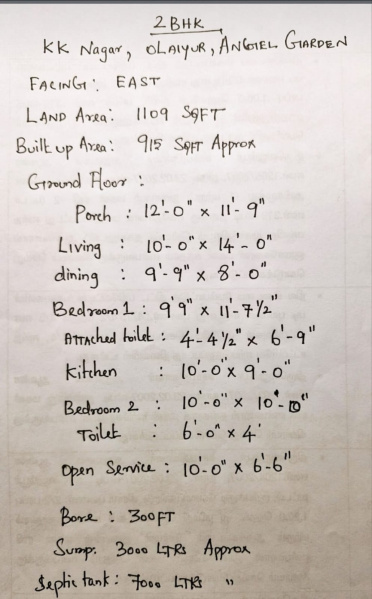 2 BHK
KK Nagar, OLAIYUR, ANGEL GARDEN
FACING: EAST
LAND Area: 1109 SQFT
Built up Area: 915 SQFT Approx
Ground Floor :
Porch : 12'-0" x 11'-9"
Living : 10'-0" x 14'-0"
dining : 9'-9" x 8'-0"
Bedroom 1 : 9'9" x 11'-7 1/2"
Attached toilet : 4'-4 1/2" x 6'-9"
Kitchen : 10'-0" x 9'-0"
Bedroom 2 : 10'-0" x 10'-10"
Toilet : 6'-0" x 4'
Open Service : 10'-0" x 6'-6"
Bore : 300FT
Sump. 3000 LTRS Approx
Septic tank : 7000 LTRS "